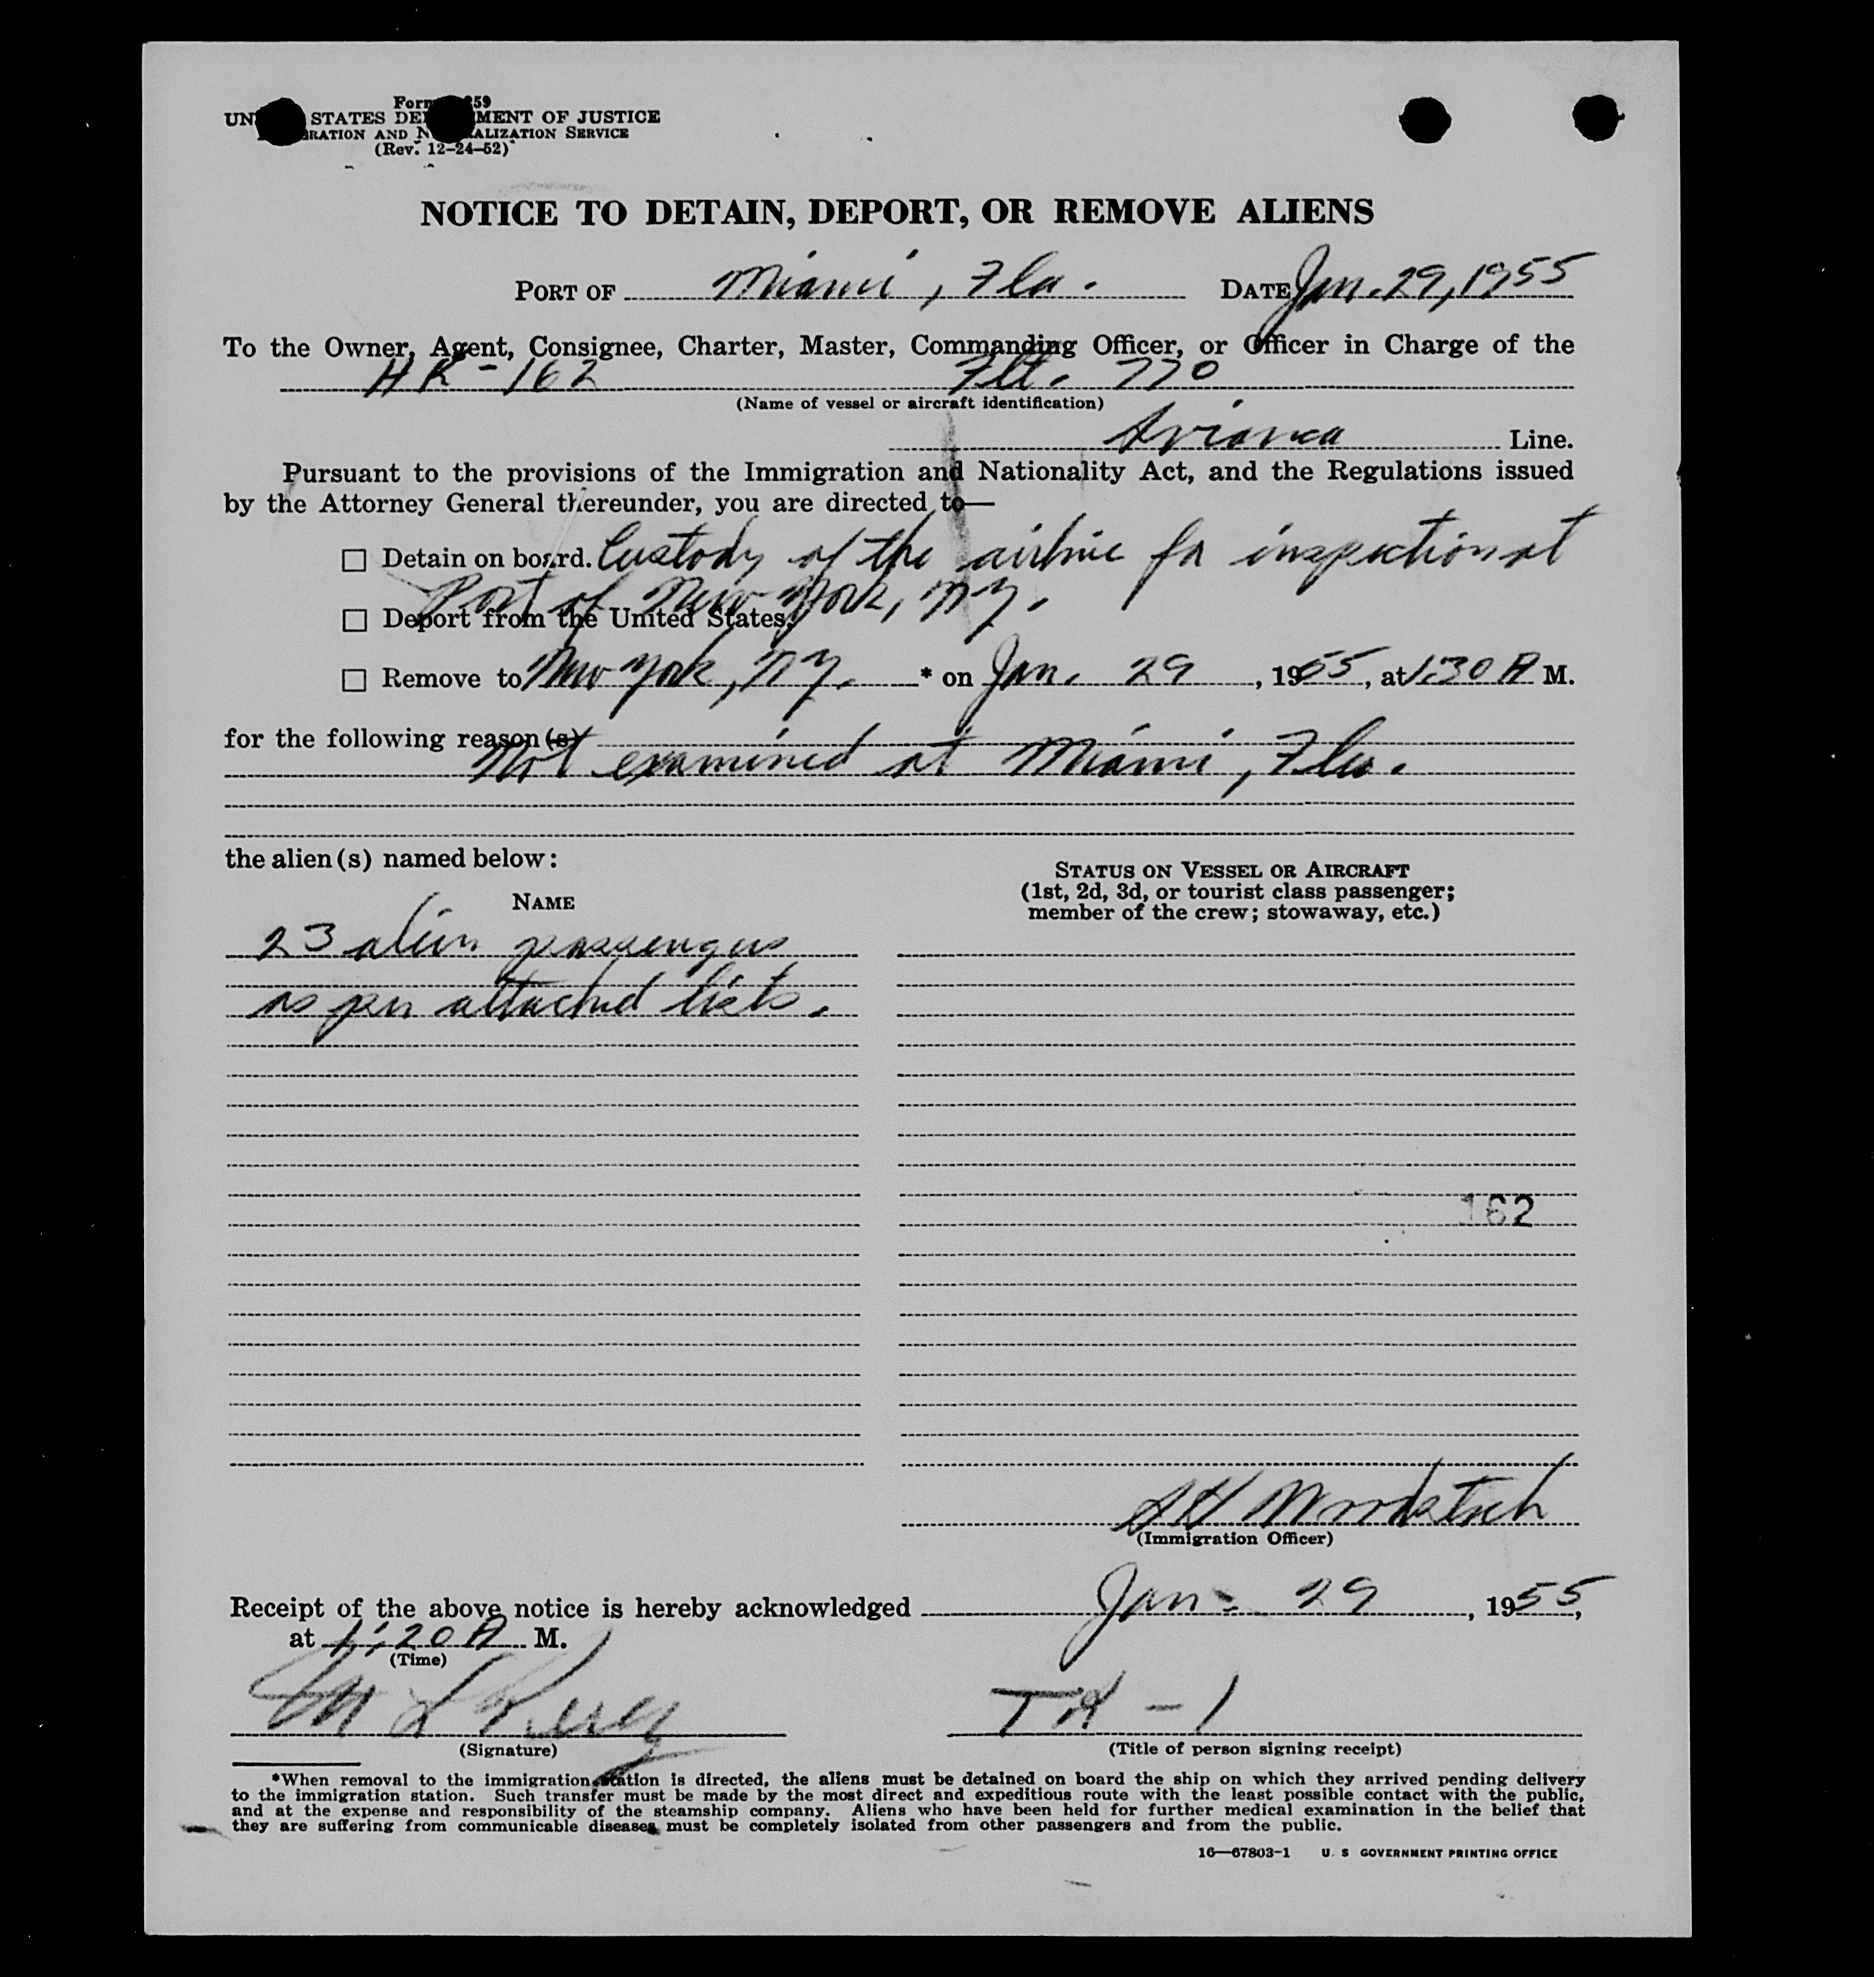 Form 259
UN STATES DE MENT OF JUSTICE
RATION AND N ALIZATION SERVICE
(Rev. 12–24–52)
NOTICE TO DETAIN, DEPORT, OR REMOVE ALIENS
PORT OF Miami, Fla. DATE Jan. 29, 1955
To the Owner, Agent, Consignee, Charter, Master, Commanding Officer, or Officer in Charge of the
HK-162 Flt. 770
(Name of vessel or aircraft identification)
Avianca Line.
Pursuant to the provisions of the Immigration and Nationality Act, and the Regulations issued
by the Attorney General thereunder, you are directed to—
☐ Detain on board. Custody of the airline for inspection at
Port of New York, NY.
☐ Deport from the United States.
☐ Remove to New York, NY. * on Jan. 29, 1955, at 1:30 A M.
for the following reason(s)
Not examined at Miami, Fla.
the alien(s) named below:
NAME
STATUS ON VESSEL OR AIRCRAFT
(1st, 2d, 3d, or tourist class passenger;
member of the crew; stowaway, etc.)
23 alien passengers
as per attached lists.
162
(Immigration Officer)
Receipt of the above notice is hereby acknowledged Jan. 29, 1955,
at 1:20 A M.
(Time)
(Signature)
(Title of person signing receipt)
*When removal to the immigration station is directed, the aliens must be detained on board the ship on which they arrived pending delivery
to the immigration station. Such transfer must be made by the most direct and expeditious route with the least possible contact with the public,
and at the expense and responsibility of the steamship company. Aliens who have been held for further medical examination in the belief that
they are suffering from communicable diseases must be completely isolated from other passengers and from the public.
16—67803-1 U. S GOVERNMENT PRINTING OFFICE